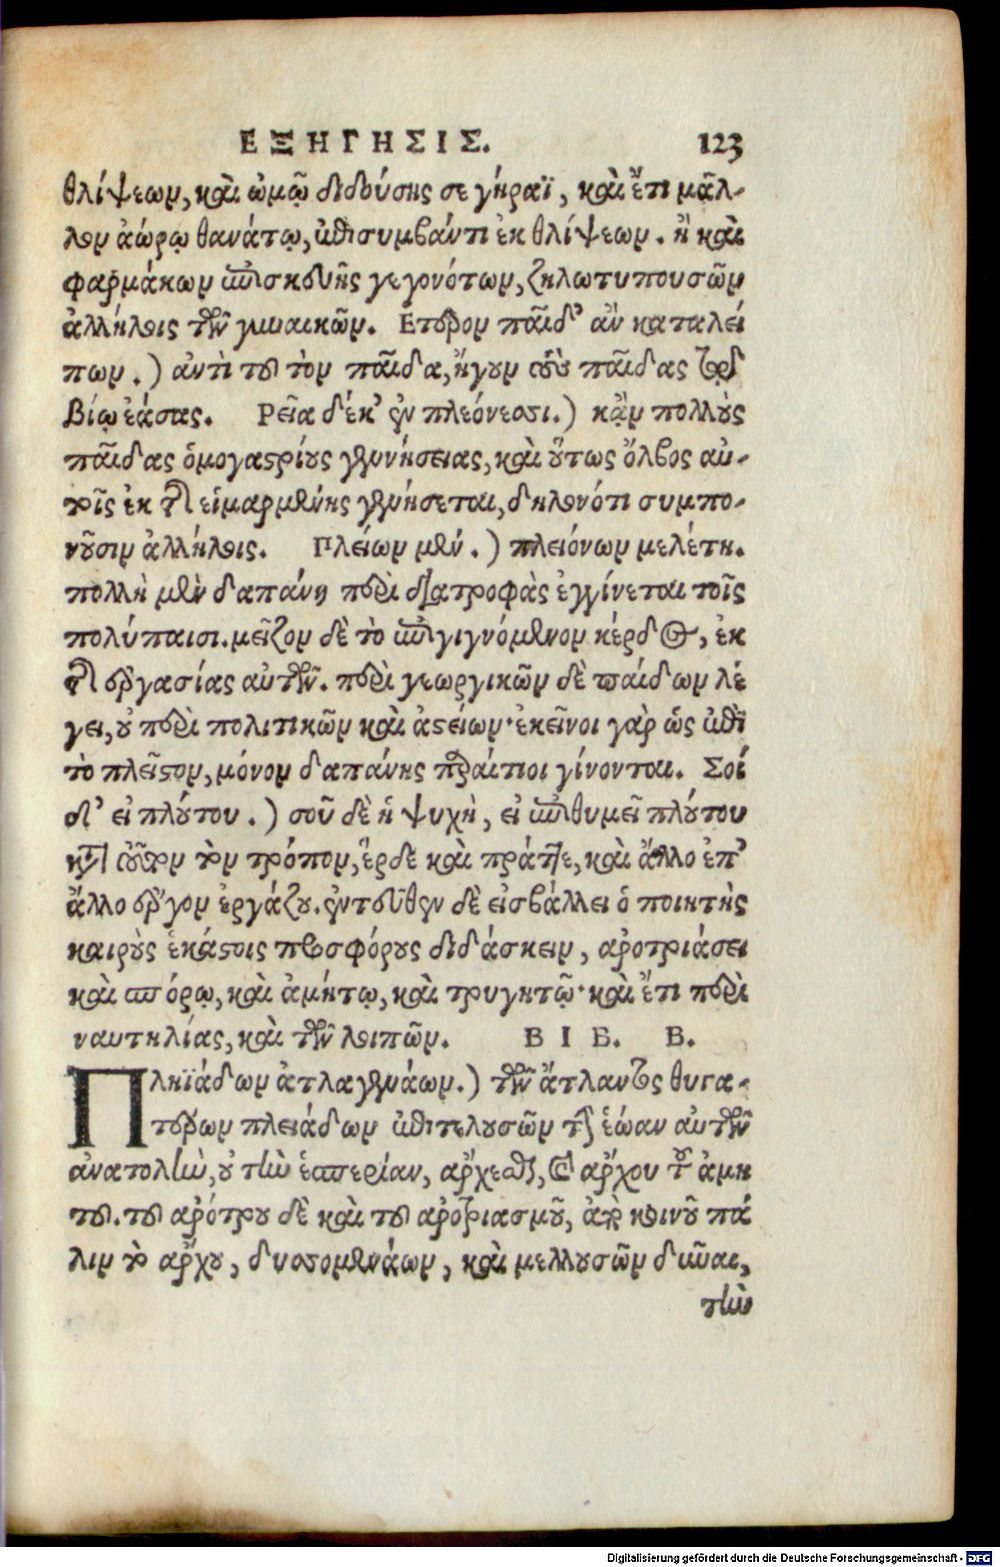 ΕΞΗΓΗΣΙΣ. 123
θλίψεων, καὶ ὠμῷ διδούσης σε γήραϊ, καὶ ἔτι μᾶλ-
λον ἀώρῳ θανάτῳ, ἐπισυμβάντι ἐκ θλίψεων. ἢ καὶ
φαρμάκων ἐπισκευῆς γεγονότων, ζηλωτυπουσῶν
ἀλλήλοις τῶν γυναικῶν. Ετερον παῖδ' ἂν καταλεί
πων.) ἀντὶ τοῦ τὸν παῖδα, ἤγουν τοὺς παῖδας τῷδε
βίῳ ἐάσας. Ρεῖα δέ κ' ἐν πλεόνεσσι.) κἂν πολλοὺς
παῖδας ὁμογαστρίους γεννήσειας, καὶ οὕτως ὄλβος αὐ-
τοῖς ἐκ τῆς εἱμαρμένης γεννήσεται, δηλονότι συμπο-
νοῦσιν ἀλλήλοις. Πλείων μέν.) πλειόνων μελέτη.
πολλὴ μὲν δαπάνη περὶ διατροφὰς ἐγγίνεται τοῖς
πολύπαισι. μεῖζον δὲ τὸ ἐπιγιγνόμενον κέρδος, ἐκ
τῆς ἐργασίας αὐτῶν. περὶ γεωργικῶν δὲ παίδων λέ
γει, οὐ περὶ πολιτικῶν καὶ ἀστείων· ἐκεῖνοι γὰρ ὡς ἐπὶ
τὸ πλεῖστον, μόνον δαπάνης παραίτιοι γίνονται. Σοί
δ' εἰ πλούτου.) σοῦ δὲ ἡ ψυχὴ, εἰ ἐπιθυμεῖ πλούτου
κατὰ τοῦτον τὸν τρόπον, ἕρδε καὶ πράττε, καὶ ἄλλο ἐπ'
ἄλλο ἔργον ἐργάζου. ἐντεῦθεν δὲ εἰσβάλλει ὁ ποιητὴς
καιροὺς ἑκάστοις προσφόρους διδάσκειν, ἀροτριάσει
καὶ σπόρῳ, καὶ ἀμήτῳ, καὶ τρυγητῷ· καὶ ἔτι περὶ
ναυτηλίας, καὶ τῶν λοιπῶν. ΒΙΒ. Β.
Πληϊάδων ἀτλαγενάων.) τῶν ἄτλαντος θυγα-
τέρων πλειάδων ἐπιτελουσῶν τὴν ἑώαν αὐτῶν
ἀνατολὴν, οὐ τὴν ἑσπερίαν, ἄρχεσθαι, καὶ ἄρχου τοῦ ἀμη
τοῦ. τοῦ ἀρότρου δὲ καὶ τοῦ ἀροτριασμοῦ, ἀπὸ κοινοῦ πά
λιν τὸ ἄρχου, δυσσομενάων, καὶ μελλουσῶν δῦναι,
τὴν
Digitalisierung gefördert durch die Deutsche Forschungsgemeinschaft - DFG